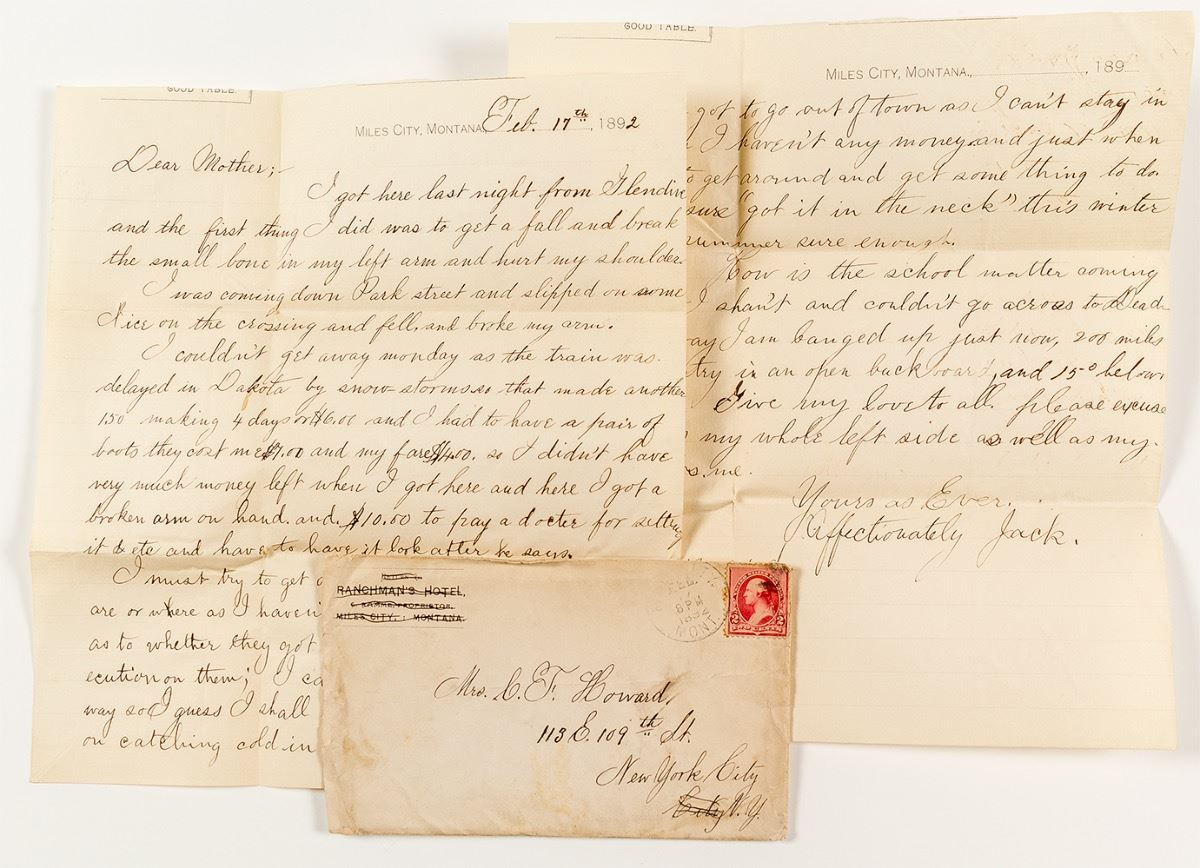 GOOD TABLE.
MILES CITY, MONTANA, Feb. 17th 1892
Dear Mother;-
I got here last night from Glendive
and the first thing I did was to get a fall and break
the small bone in my left arm and hurt my shoulder.
I was coming down Park street and slipped on some
ice on the crossing and fell and broke my arm.
I couldn't get away monday as the train was
delayed in Dakota by snow storms so that made another
150 making 4 days or $6.00 and I had to have a pair of
boots they cost me $7.00 and my fare $4.00. so I didn't have
very much money left when I got here and here I got a
broken arm on hand. and. $10.00 to pay a docter for setting
it & ete and have to have it look after he says.
I must try to get
are or where as I haven
as to whether they got
ecution on them; I ca
way so I guess I shall
on catching cold in
GOOD TABLE.
MILES CITY, MONTANA, 189
got to go out of town as I can't stay in
I haven't any money and just when
to get around and get some thing to do.
sure "got it in the neck" this winter
summer sure enough.
How is the school matter coming
I shan't and couldn't go across to Dead
ay I am banged up just now, 200 miles
try in an open buck board, and 15° below
Give my love to all. please excuse
my whole left side as well as my
s me.
Yours as Ever.
Affectionately Jack.
RANCHMAN'S HOTEL,
PROPRIETOR.
MILES CITY, : MONTANA.
6 PM
MONT.
Mrs. C. F. Howard,
113 E. 109th St.
New York City
City N.Y.